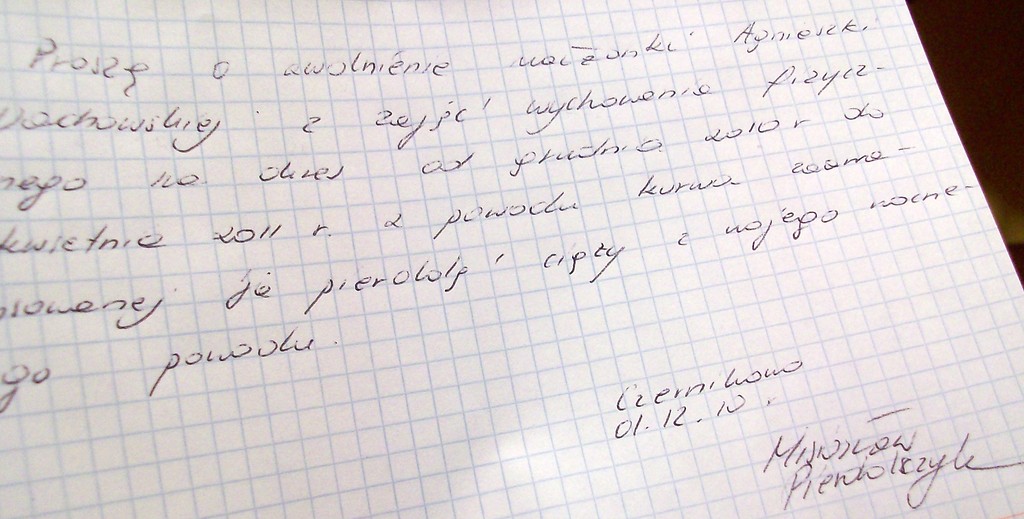 Proszę o zwolnienie małżonki Agnieszki
Wachowskiej z zajęć wychowania fizycz-
nego na okres od grudnia 2010 r do
kwietnia 2011 r. z powodu kurwa zaawa-
nsowanej ja pierdolę ciąży z mojego mocne-
go powodu.
Czernikowo
01.12.10 r.
Mirosław
Pierdolszyk